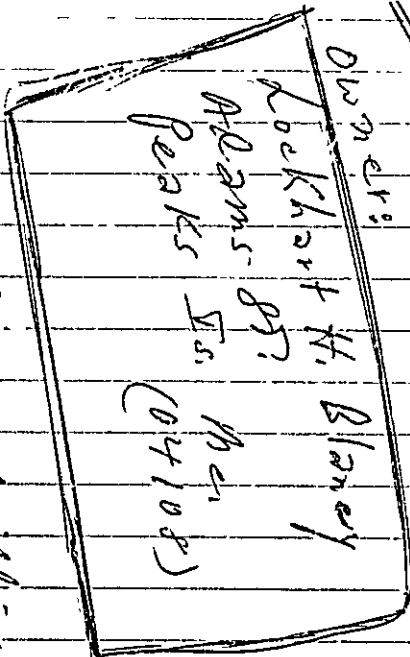 Owner:
Lockhart H. Blaney
Adams St.
Peaks Is. Me.
(04108)